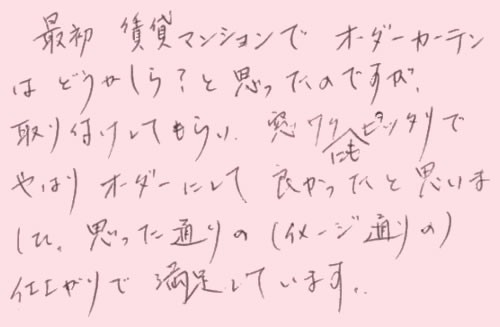 最初 賃貸マンションで オーダーカーテン
は どうかしら？と思ったのですが、
取り付けしてもらい、窓ワクにもピッタリで
やはり オーダーにして 良かったと思いま
した。思った通りの（イメージ通りの）
仕上がりで 満足しています。